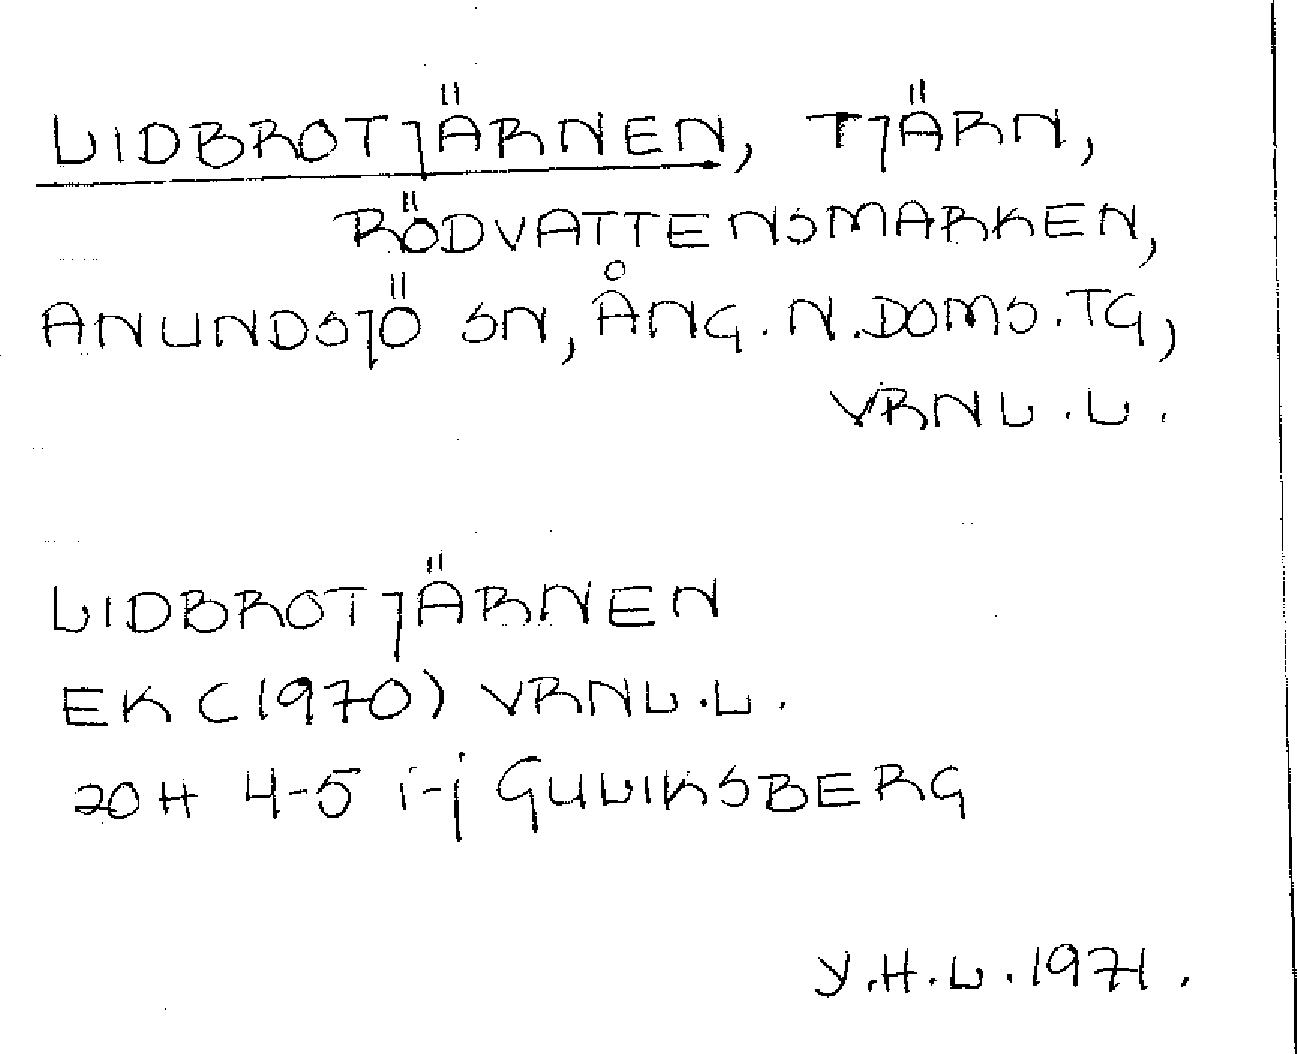 LIDBROTJÄRNEN, TJÄRN,
RÖDVATTENSMARKEN,
ANUNDSJÖ SN, ÅNG. N. DOMS. TG,
VRNL. L.
LIDBROTJÄRNEN
EK (1970) VRNL. L.
20H 4-5 i-j GULIKSBERG
Y.H.L. 1971.